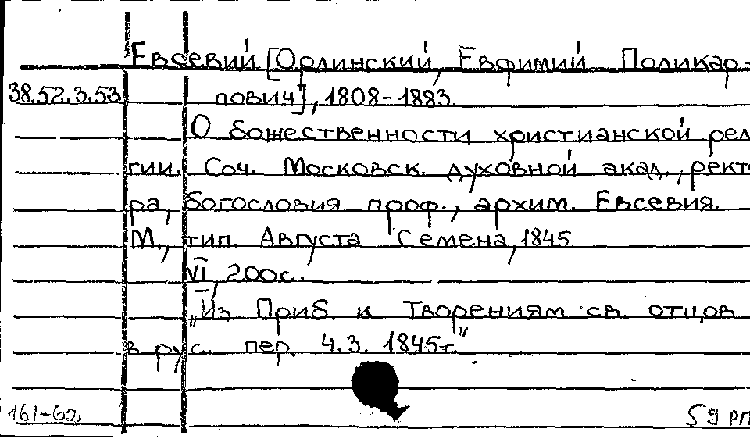 Евсевий [Орлинский, Евфимий Поликар-
38.52.3.53 пович], 1808-1883.
О божественности христианской рел
гии. Соч. Московск. духовной акад., ректо
ра, богословия проф., архим. Евсевия.
М., тип. Августа Семена, 1845
VI, 200с.
„Из Приб. к Творениям св. отцов
в рус. пер. Ч.3. 1845г."
161-60 59 РП